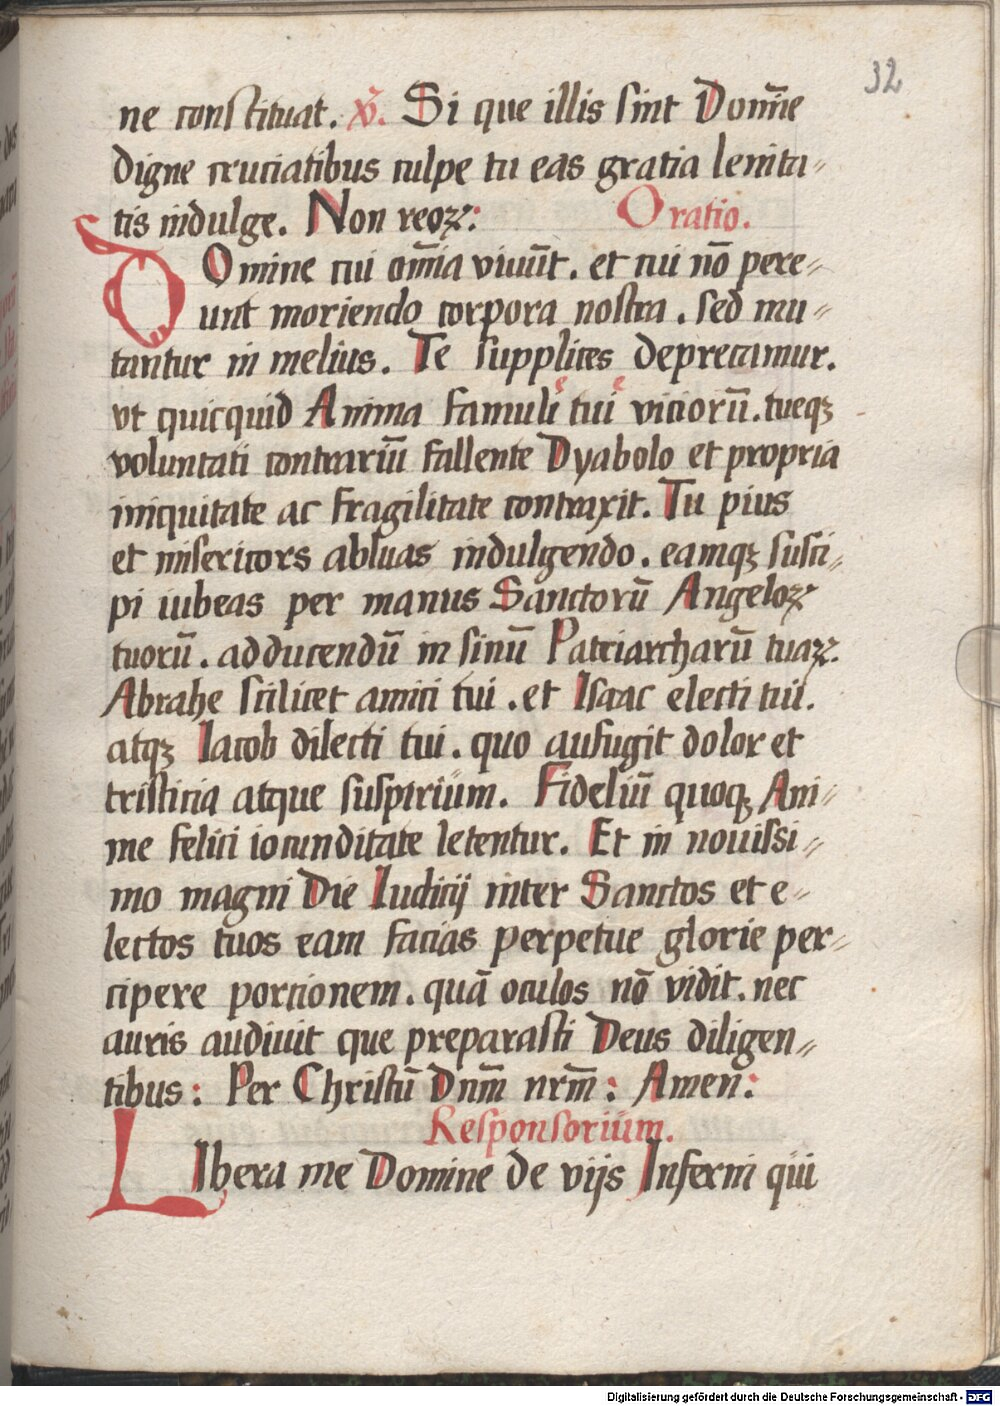 32
ne constituat. v̄. Si que illis sint Domīe
digne cruciatibus culpe tu eas gratia lenita〃
tis indulge. Non reoꝝ: Oratio.
DOmine cui om̄ia viuūt. et cui nō pere〃
unt moriendo corpora nostra. sed mu〃
tantur in melius. Te supplices deprecamur.
vt quicquid Anima famuliᵉ tuiᵉ vicioru᷑. tueqꝫ
voluntati contrariū fallente Dyabolo et propria
iniquitate ac fragilitate contraxit. Tu pius
et misericors abluas indulgendo. eamqꝫ susci〃
pi iubeas per manus Sanctorū Angeloꝝ
tuorū. adducendū in sinū Patriarcharū tuaꝝ.
Abrahe scilicet amici tui. et Isaac electi tui.
atqꝫ Iacob dilecti tui. quo aufugit dolor et
tristicia atque suspirium. Fideliū quoqꝫ Ani〃
me felici iocunditate letentur. Et in nouissi〃
mo magni Die Iudicij inter Sanctos et e〃
lectos tuos eam facias perpetue glorie per〃
cipere portionem. quā oculos nō vidit. nec
auris audiuit que preparasti Deus diligen〃
tibus: Per Christū Dnm̄ nrm̄: Amen:
Responsorium.
LIbera me Domine de vijs Inferni qui
Digitalisierung gefördert durch die Deutsche Forschungsgemeinschaft - DFG